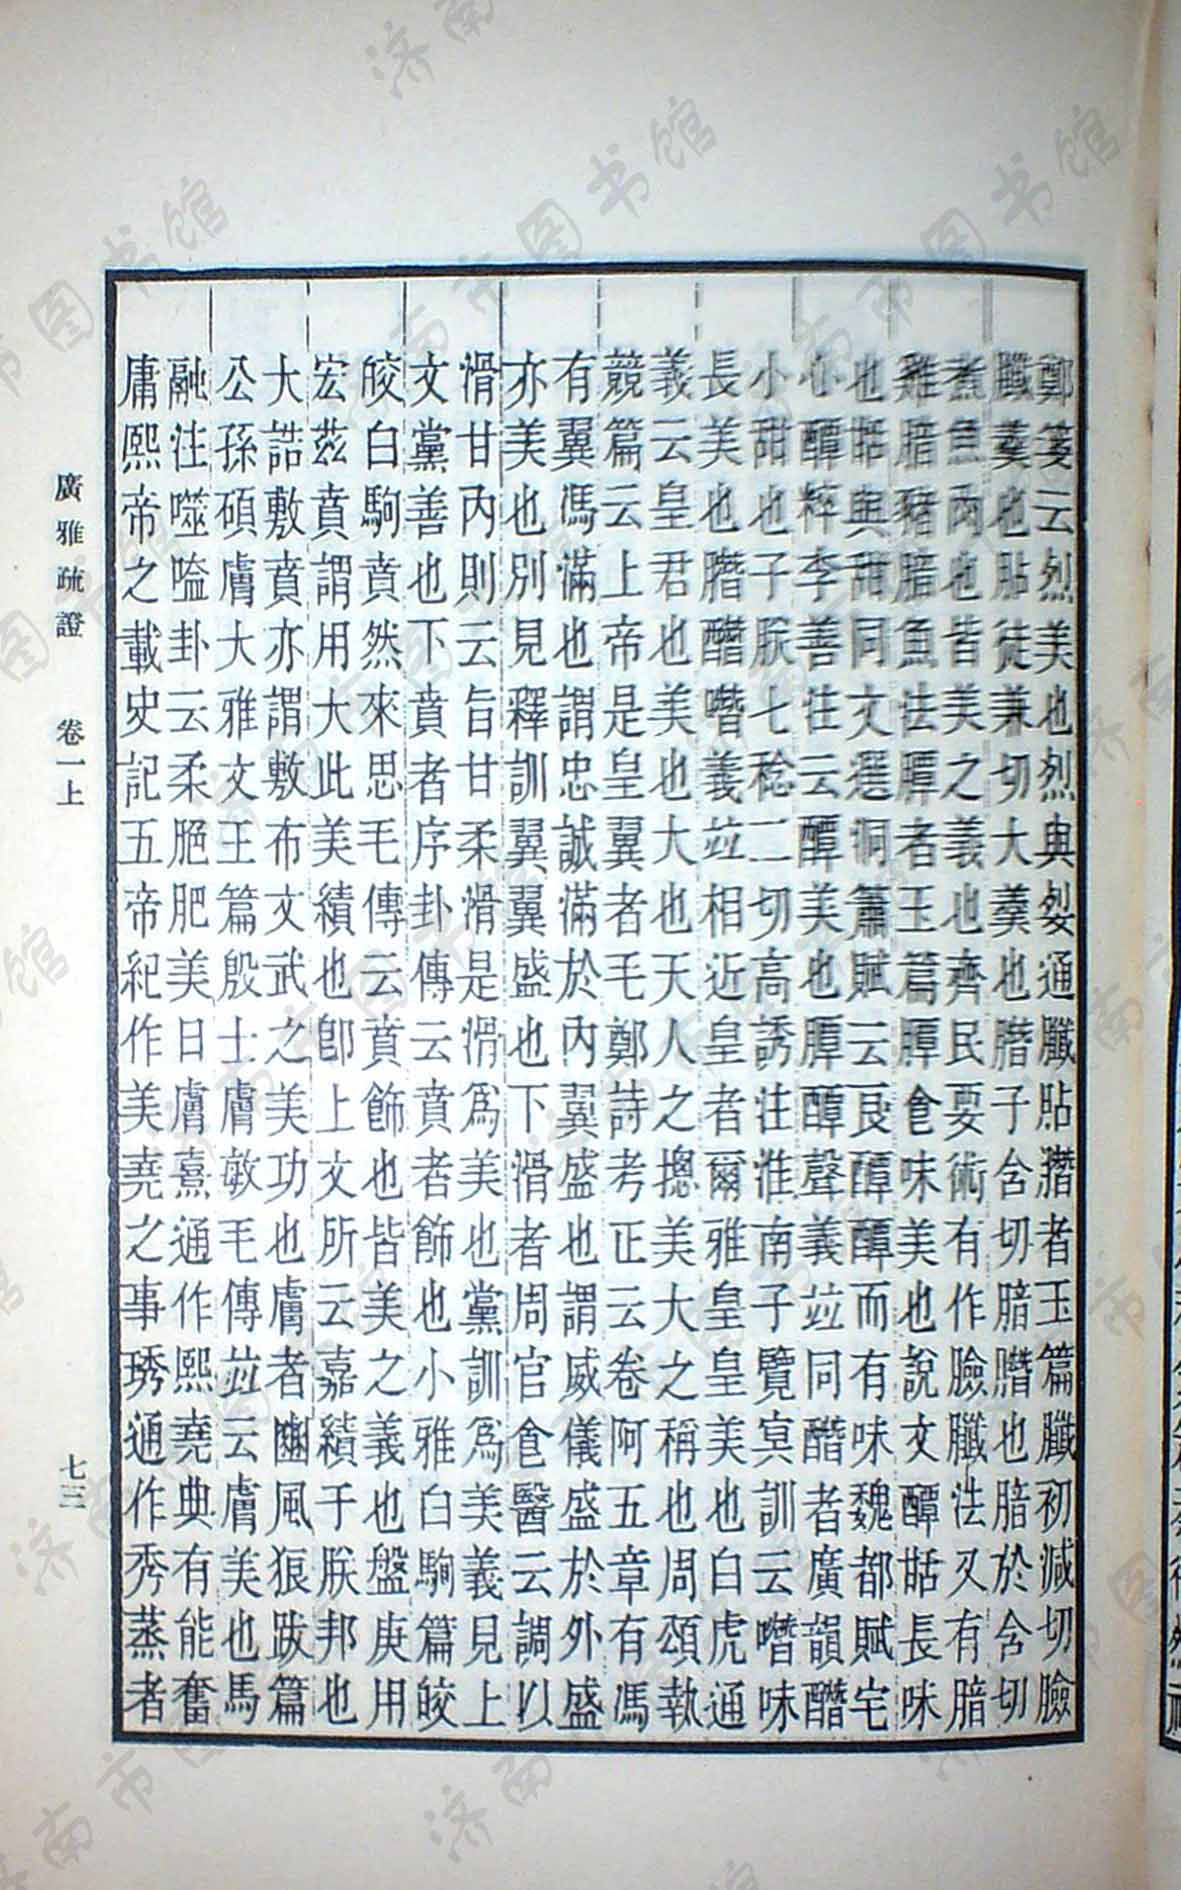 鄭箋云烈美也烈典烮通臘貼膳者玉篇臘初減切臉
臘羹也貼徒兼切大羹也膳子含切腤膳也腤於含切
煮魚肉也皆美之義也齊民要術有作臉臘法又有腤
雞腤豬腤魚法膻者玉篇膻食味美也說文醰甛長味
也甛與甜同文選洞簫賦云良醰醰而有味魏都賦宅
心醰粹李善注云醰美也膻醰聲義竝同醋者廣韻醋
小甜也子朕七稔二切高誘注淮南子覽冥訓云噆味
長美也膳醋噆義竝相近皇者爾雅皇皇美也白虎通
義云皇君也美也大也天人之摠美大之稱也周頌執
競篇云上帝是皇翼者毛鄭詩考正云卷阿五章有馮
有翼馮滿也謂忠誠滿於內翼盛也謂威儀盛於外盛
亦美也別見釋訓翼翼盛也下滑者周官食醫云調以
滑甘內則云旨甘柔滑是滑爲美也黨訓爲美義見上
文黨善也下賁者序卦傳云賁者飾也小雅白駒篇皎
皎白駒賁然來思毛傳云賁飾也皆美之義也盤庚用
宏茲賁謂用大此美績也卽上文所云嘉績于朕邦也
大誥敷賁亦謂敷布文武之美功也膚者豳風狼跋篇
公孫碩膚大雅文王篇殷士膚敏毛傳竝云膚美也馬
融注噬嗑卦云柔脃肥美曰膚熹通作熙堯典有能奮
庸熙帝之載史記五帝紀作美堯之事琇通作秀蒸者
廣雅疏證 卷一上
七三